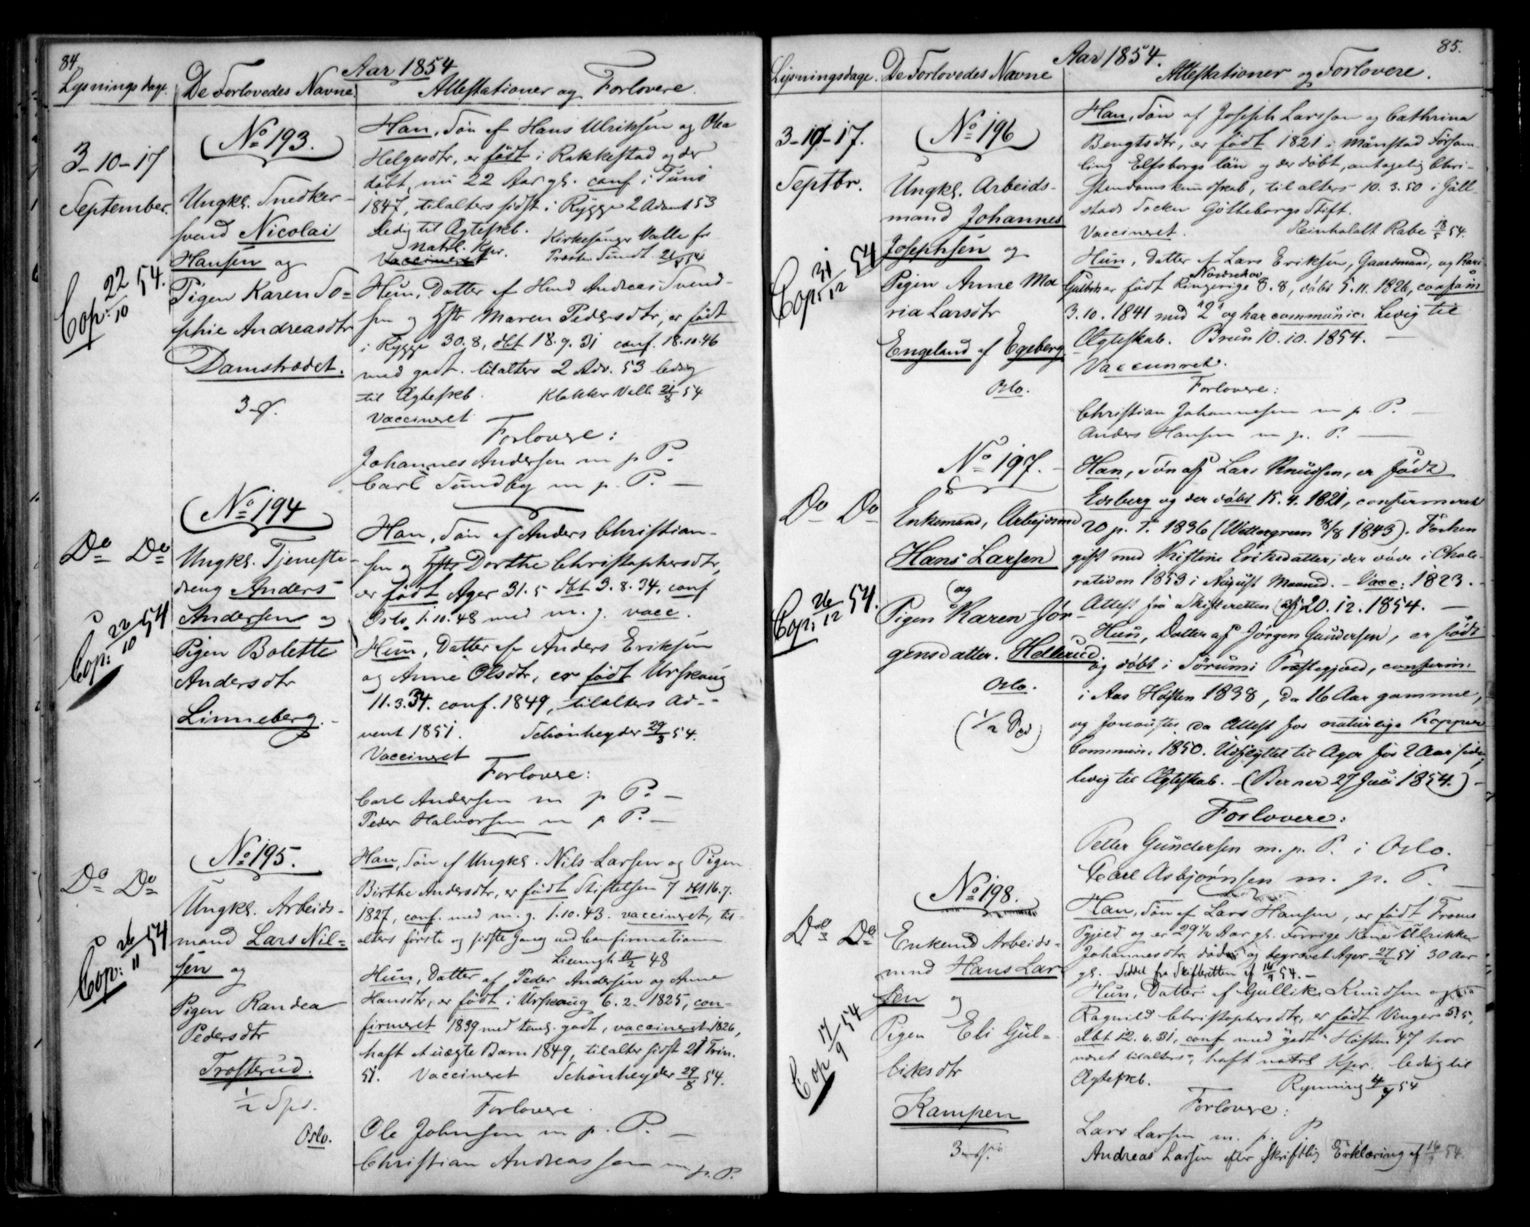 84.
Aar 1854.
Lysningsdage. De Forlovedes Navne Attestationer og Forlovere.
3-10-17
September.
No 193.
Ungkl. Snedker-
svend Nicolai
Hansen og
Pigen Karen So-
phie Andreasdtr
Damstrædet.
Cop: 22/10 54.
Han, Søn af Hans Ulriksen og Olea
Helgesdtr, er født i Rakkestad og der
døbt, nu 22 Aar gl. conf. i Tune
1847, tilalters sidst i Rygge 2 Advent 53
ledig til Ægteskb.
natl. Kpr. Kirkesanger Valle for
Vaccineret Præsten Sundt 54
Hun, Datter af Hmd Andreas Svend-
sen og Hstr Maren Pedersdtr, er født
i Rygge 30.8, dbt 18.9.31 conf. 18.10.46
med godt. tilalters 2 Adv. 53 ledig
til Ægteskb. Klokker Valle 21/8 54
Vaccineret
Forlovere:
Johannes Andersen m p P.
Carl Sundby m. p. P. —
Do Do
No 194
Ungkl. Tjeneste-
dreng Anders
Andersen og
Pigen Bolette
Andersdtr
Linneberg.
Cop: 22/10 54
Han, Søn af Anders Christian-
sen og Hstr Dorthe Christophersdtr,
er født Ager 31.5 dbt 3.8.34. conf
Oslo 1.10.48 med m. g. vacc.
Hun, Datter af Anders Eriksen
og Anne Olsdtr, er født Urskoug
11.3.34. conf. 1849, tilalters Ad-
vent 1851. Schønheyder 29/8 54.
Vaccineret
Forlovere:
Carl Andersen m p P. —
Peder Halvorsen m p P. —
Do Do
No 195.
Ungkl. Arbeids-
mand Lars Nil-
sen og
Pigen Randea
Pedersdtr
Trosterud.
1/2 Spd.
Oslo.
Cop: 26/11 54
Han, Søn af Ungkl. Nils Larsen og Pigen
Birthe Andersdtr, er født Stiftelsen 7 dbt 16.7.
1827, conf. med m. g. 1.10.43. vaccineret, til-
alters første og sidste Gang ved Confirmationen
48
Hun, Datter af Peder Andersen og Anne
Hansdtr, er født i Urskoug 6.2.1825, con-
firmeret 1839 med godt, vaccineret 1826,
haft et uægte Barn 1849, tilalters sidst 21 Trin.
51. Vaccineret Schønheyder 29/8 54.
Forlovere
Ole Johnsen m. p. P. —
Christian Andreassen m. p. P.
85.
Aar 1854.
Lysningsdage. De Forlovedes Navne Attestationer og Forlovere.
3-10-17.
Septbr.
No 196
Ungkl. Arbeids-
mand Johannes
Josephsen og
Pigen Anne Ma-
ria Larsdtr
Engeland af Egeberg
Oslo.
Cop: 31/12 54
Han, Søn af Joseph Larsson og Cathrina
Bengtsdtr, er født 1821 i Månstad Försam-
ling Elfsborgs län og der døbt, antagelig Chri-
stendoms kundskab, til alters 10.3.50 i
Socken Götteborgs Stift.
Vaccineret. Reinholdt Rabe 54.
Hun, Datter af Lars Eriksen, Gaardmand, og Kari
født Ringerige Norderhov 8.8, døbt 5.11.1826, confirm
3.10.1841 med "2" og har communic. Ledig til
Ægteskab. Bruun 10.10.1854. —
Vaccineret.
Forlovere:
Christian Johannesen m p. P. —
Anders Hansen m p. P. —
Do Do
No 197.
Enkemand, Arbejdsmd
Hans Larsen
og
Pigen Karen Jør-
gensdatter. Hellerud.
Oslo.
(1/2 Spd)
Cop: 26/12 54.
Han, Søn af Lars Knudsen, er født
Eidsberg og der døbt 15.4.1821, confirmeret
20 p. T. 1836 (Wettergreen 1843). Før hen
gift med Kistine Eriksdatter, der døde i Chole-
ratiden 1853 i August Maaned. — Vacc: 1823.
Attest fra Skifteretten af 20.12.1854. —
Hun, Datter af Jørgen Gundersen, er født
og døbt i Sørum Præstegjeld, confirm:
i Aas Høsten 1838, da 16 Aar gammel,
og foreviste da Attest for naturlige Kopper
Commun. 1850. Udflyttet til Ager for 2 Aar siden,
ledig til Ægteskab. — (Berner 27 Juli 1854.) —
Forlovere:
Petter Gundersen m. p. P. i Oslo.
Carl Asbjørnsen m. p. P. —
Do Do
No 198.
Enkemd Arbeids-
mnd Hans Lar-
sen og
Pigen Eli Gul-
liksdtr
Kampen
Cop 17/9 54
Han, Søn af Lars Hansen, er født
Pgjeld og er 29 1/2 Aar gl. Forrige Kone Ulrikke
Johannesdtr død og begravet Ager 51 30 Aar
gl. Seddel fra Skifteretten af 54. —
Hun, Datter af Gullik Knudsen og
Ragnild Christophersdtr, er født Vinger
dbt 12.6.31, conf med godt Høsten 47 har
været tilalters, haft natrl Kpr. ledig til
Ægteskb. Rynning 54
Forlovere:
Lars Larsen m. p. P
Andreas Larsen efter skriftlig Erklæring af 54.